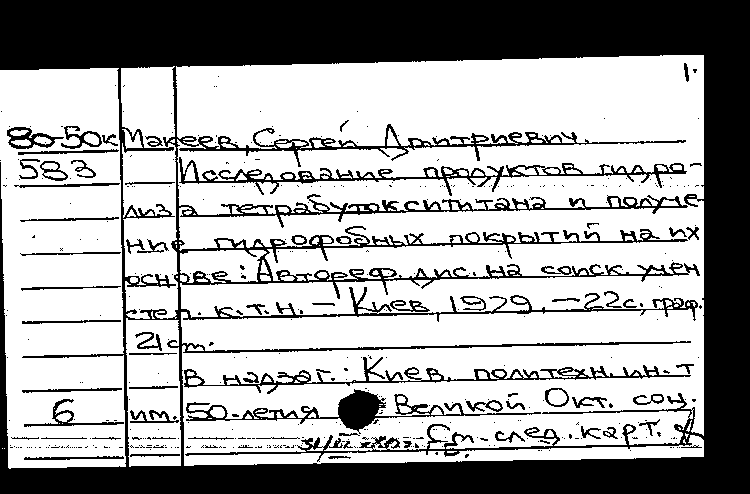 1.
80-50к Макеев, Сергей Дмитриевич.
583 Исследование продуктов гидро-
лиза тетрабутоксититана и получе-
ние гидрофобных покрытий на их
основе: Автореф. дис. на соиск. учен
степ. к.т.н. – Киев, 1979, –22с, граф.
21 см.
В надзаг.: Киев. политехн. ин-т
6 им. 50-летия Великой Окт. соц.
См. след. карт.